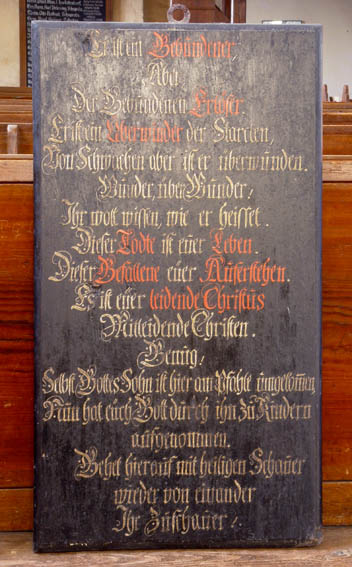 Er ist ein Gebundener,
Aber
Der Gebundenen Erlöser.
Er ist ein Uberwinder der Starcken,
Von Schwachen aber ist er uberwunden.
Wunder, über Wunder,
Ihr wolt wissen, wie er heisset.
Dieser Todte ist euer Leben.
Dieser Gefallene euer Auferstehen.
Es ist euer leidende Christus
Mitleidende Christen.
Gnug,
Selbst Gottes Sohn ist hier am Pfahle umgekommen,
Nun hat euch Gott durch ihn zu Kindern
aufgenommen.
Gehet hierauf mit heiligen Schauer
wieder von einander
Ihr Zuschauer.